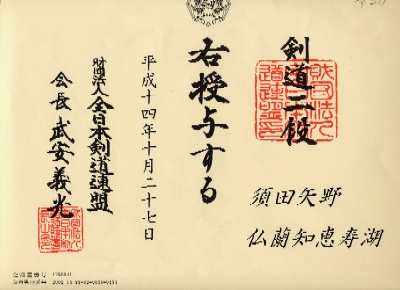 剣道二段
須田矢野
仏蘭知恵寿湖
右授与する
平成十四年十月二十七日
財団法人全日本剣道連盟
会長 武安義光